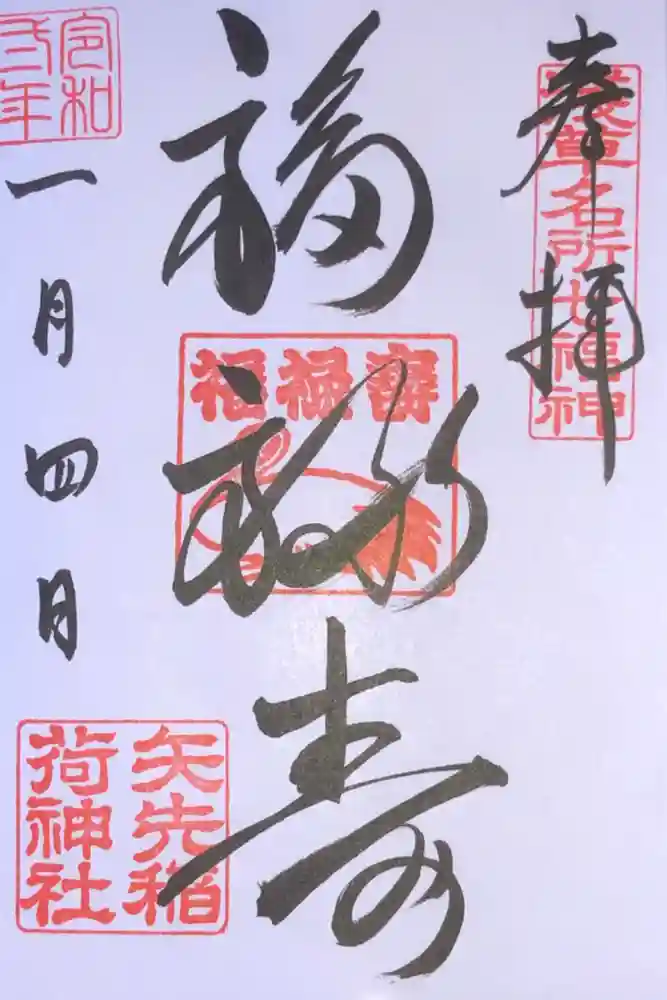 奉拝
浅草名所七福神
福禄寿
福禄壽
令和
弐年
一月四日
矢先稲
荷神社